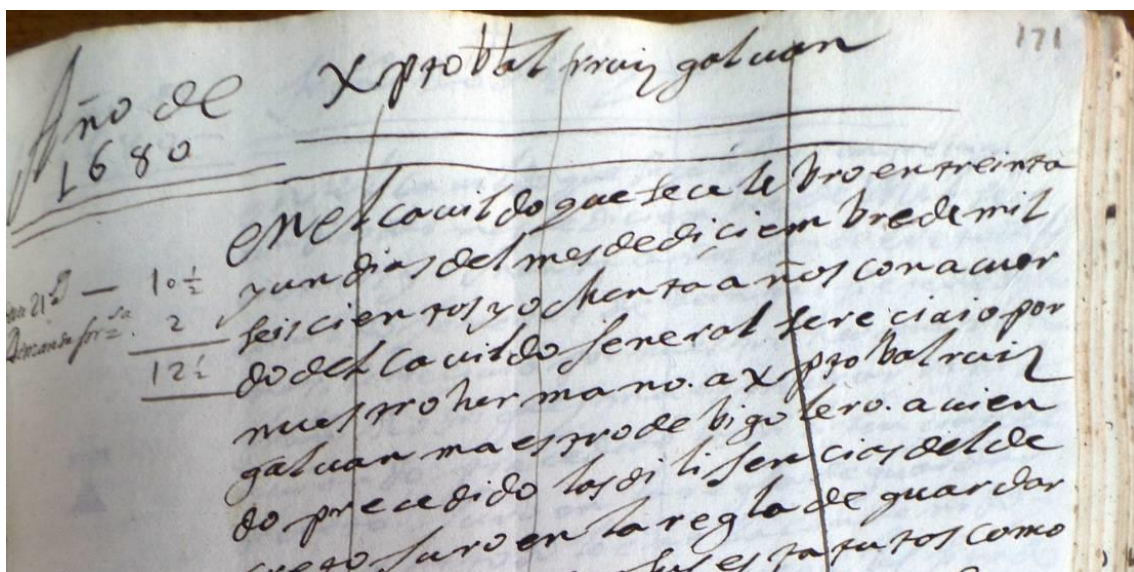 171
Año de
1680
Xprobal rruiz galuan
en el cauildo que se cele bro en treinta
y un dias del mes de diciembre de mil
seiscientos y ochenta años con acuer
do del cauildo jeneral se reciuio por
nuestro hermano. a xprobal ruiz
galuan maestro de bigotero. auien
do precedido las dilijencias del de
creto juro en la regla de guardar
estatutos como
10 1/2
2
12 1/2